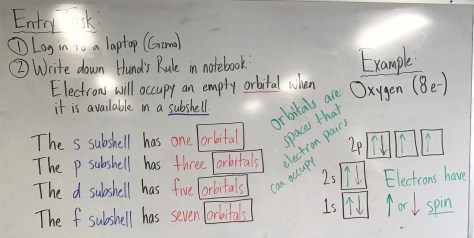 Entry Task:
① Log in to a laptop (Gizmo)
② Write down Hund's Rule in notebook:
Electrons will occupy an empty orbital when
it is available in a subshell.
The s subshell has one orbital
The p subshell has three orbitals
The d subshell has five orbitals
The f subshell has seven orbitals
orbitals are
spaces that
electron pairs
can occupy
Example:
Oxygen (8e-)
2p ↑↓ ↑ ↑
2s ↑↓
1s ↑↓
Electrons have
↑ or ↓ spin